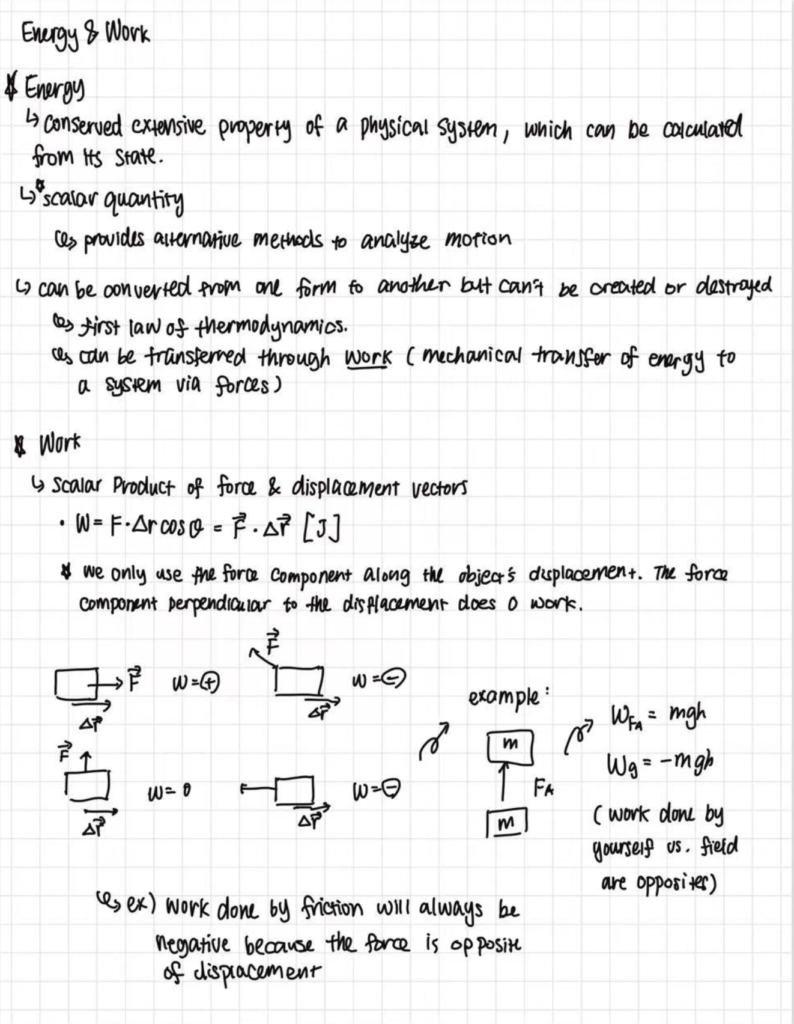 Energy & Work
* Energy
↳ conserved extensive property of a physical system, which can be calculated
from its state.
↳ *scalar quantity
↳ provides alternative methods to analyze motion
↳ can be converted from one form to another but can't be created or destroyed
↳ first law of thermodynamics.
↳ can be transferred through work (mechanical transfer of energy to
a system via forces)
* Work
↳ Scalar Product of force & displacement vectors
• W = F·Δr cos θ = F⃗ · Δr⃗ [J]
* we only use the force component along the object's displacement. The force
component perpendicular to the displacement does 0 work.
F⃗ W = ⊕ Δr⃗
F⃗ W = ⊖ Δr⃗
F⃗ W = 0 Δr⃗
W = ⊖ Δr⃗
example:
m
FA
m
W_FA = mgh
Wg = -mgh
(work done by
yourself vs. field
are opposites)
↳ ex) work done by friction will always be
negative because the force is opposite
of displacement